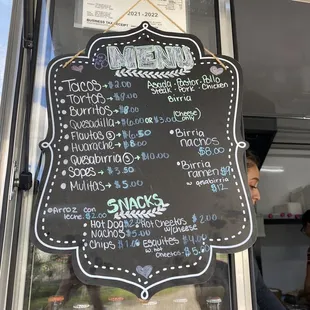 2021-2022
MENU
Tacos → $2.00
Tortas → $8.00
Burritos → $8.00
Quesadilla → $6.00 OR $3.00
Flautas → $6.50
Huarache → $8.00
Quesabirria → $10.00
Sopes → $3.50
Mulitas → $5.00
Asada · Pastor · Pollo
Steak · Pork · Chicken
Birria
(cheese)
only
· Birria
nachos
$8.00
· Birria
ramen $9
w/ quesabirria
$12
SNACKS
· Arroz con
leche · $2.00
Hot Dog
Hot Cheetos $2.00
w/cheese
Nachos $5.00
Chips $1
Esquites $4.00
w. Hot
Cheetos $5